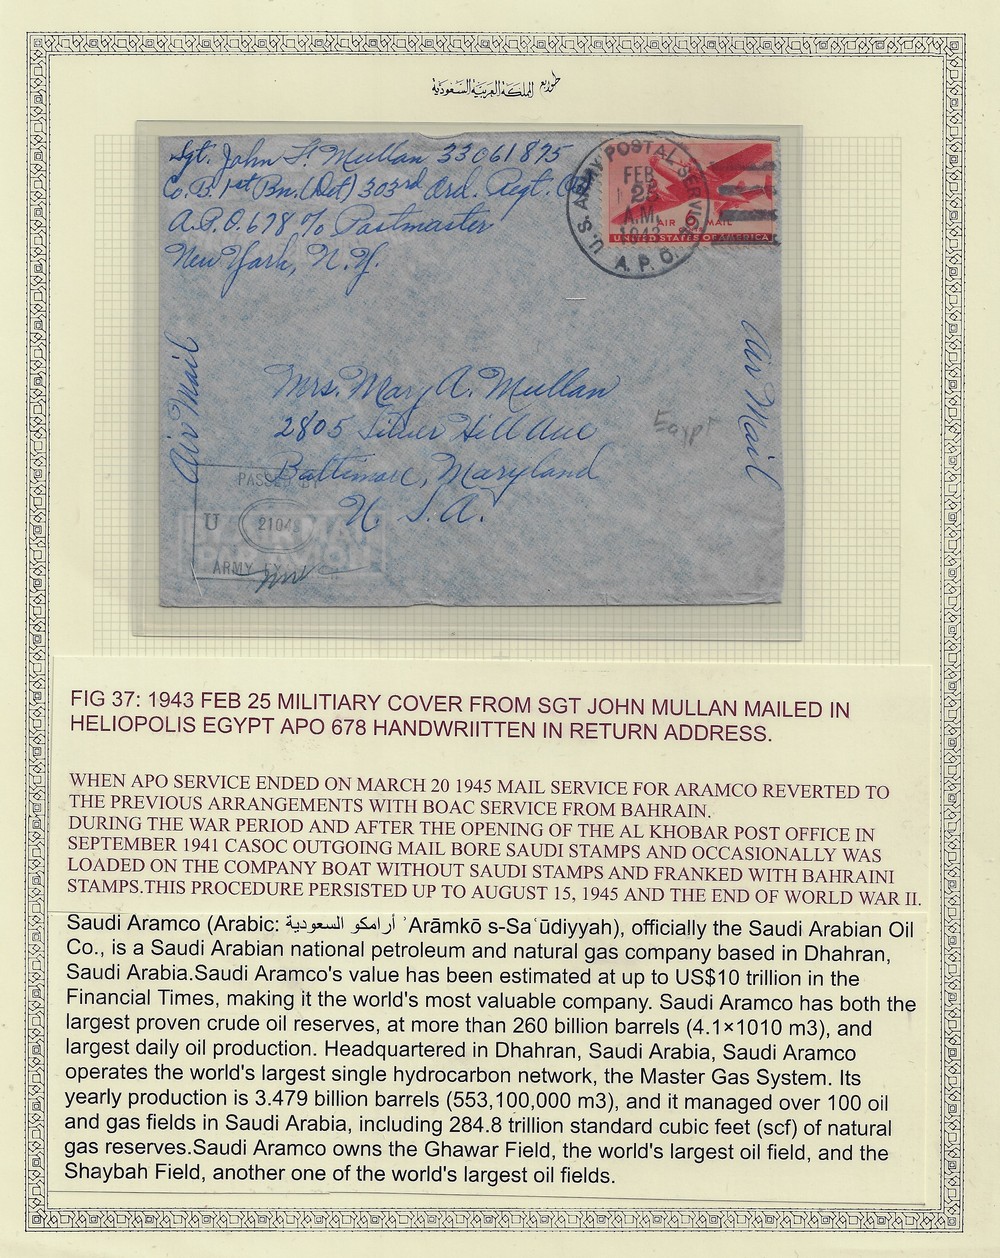 طوابع المملكة العربية السعودية
Sgt. John F. Mullan 33061875
Co. B. 1st Bn. (Det) 303rd Ord. Regt.
A.P.O. 678 % Postmaster
New York, N.Y.
U.S. ARMY POSTAL SERVICE
A.P.O.
FEB
A.M.
1943
AIR 6¢ MAIL
UNITED STATES OF AMERICA
Air Mail
Air Mail
Mrs. Mary A. Mullan
2805 Silver Hill Ave
Baltimore, Maryland
U.S.A.
Egypt
PASSED BY
U
2104
ARMY EX
FIG 37: 1943 FEB 25 MILITIARY COVER FROM SGT JOHN MULLAN MAILED IN
HELIOPOLIS EGYPT APO 678 HANDWRIITTEN IN RETURN ADDRESS.
WHEN APO SERVICE ENDED ON MARCH 20 1945 MAIL SERVICE FOR ARAMCO REVERTED TO
THE PREVIOUS ARRANGEMENTS WITH BOAC SERVICE FROM BAHRAIN.
DURING THE WAR PERIOD AND AFTER THE OPENING OF THE AL KHOBAR POST OFFICE IN
SEPTEMBER 1941 CASOC OUTGOING MAIL BORE SAUDI STAMPS AND OCCASIONALLY WAS
LOADED ON THE COMPANY BOAT WITHOUT SAUDI STAMPS AND FRANKED WITH BAHRAINI
STAMPS.THIS PROCEDURE PERSISTED UP TO AUGUST 15, 1945 AND THE END OF WORLD WAR II.
Saudi Aramco (Arabic: أرامكو السعودية ʾArāmkō s-Saʿūdiyyah), officially the Saudi Arabian Oil
Co., is a Saudi Arabian national petroleum and natural gas company based in Dhahran,
Saudi Arabia.Saudi Aramco's value has been estimated at up to US$10 trillion in the
Financial Times, making it the world's most valuable company. Saudi Aramco has both the
largest proven crude oil reserves, at more than 260 billion barrels (4.1×1010 m3), and
largest daily oil production. Headquartered in Dhahran, Saudi Arabia, Saudi Aramco
operates the world's largest single hydrocarbon network, the Master Gas System. Its
yearly production is 3.479 billion barrels (553,100,000 m3), and it managed over 100 oil
and gas fields in Saudi Arabia, including 284.8 trillion standard cubic feet (scf) of natural
gas reserves.Saudi Aramco owns the Ghawar Field, the world's largest oil field, and the
Shaybah Field, another one of the world's largest oil fields.